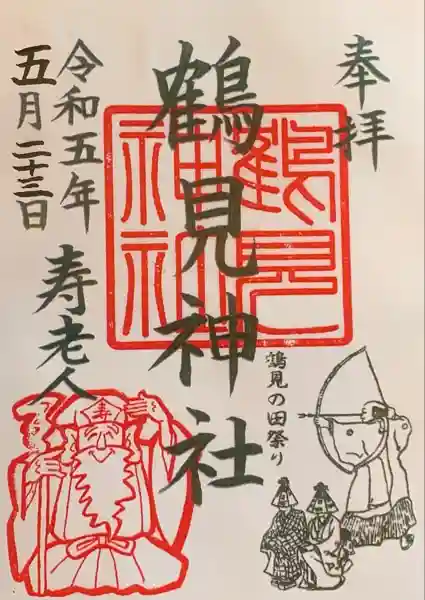 奉拝
鶴見神社
鶴見神社
令和五年
五月二十三日
寿老人
寿
鶴見の田祭り